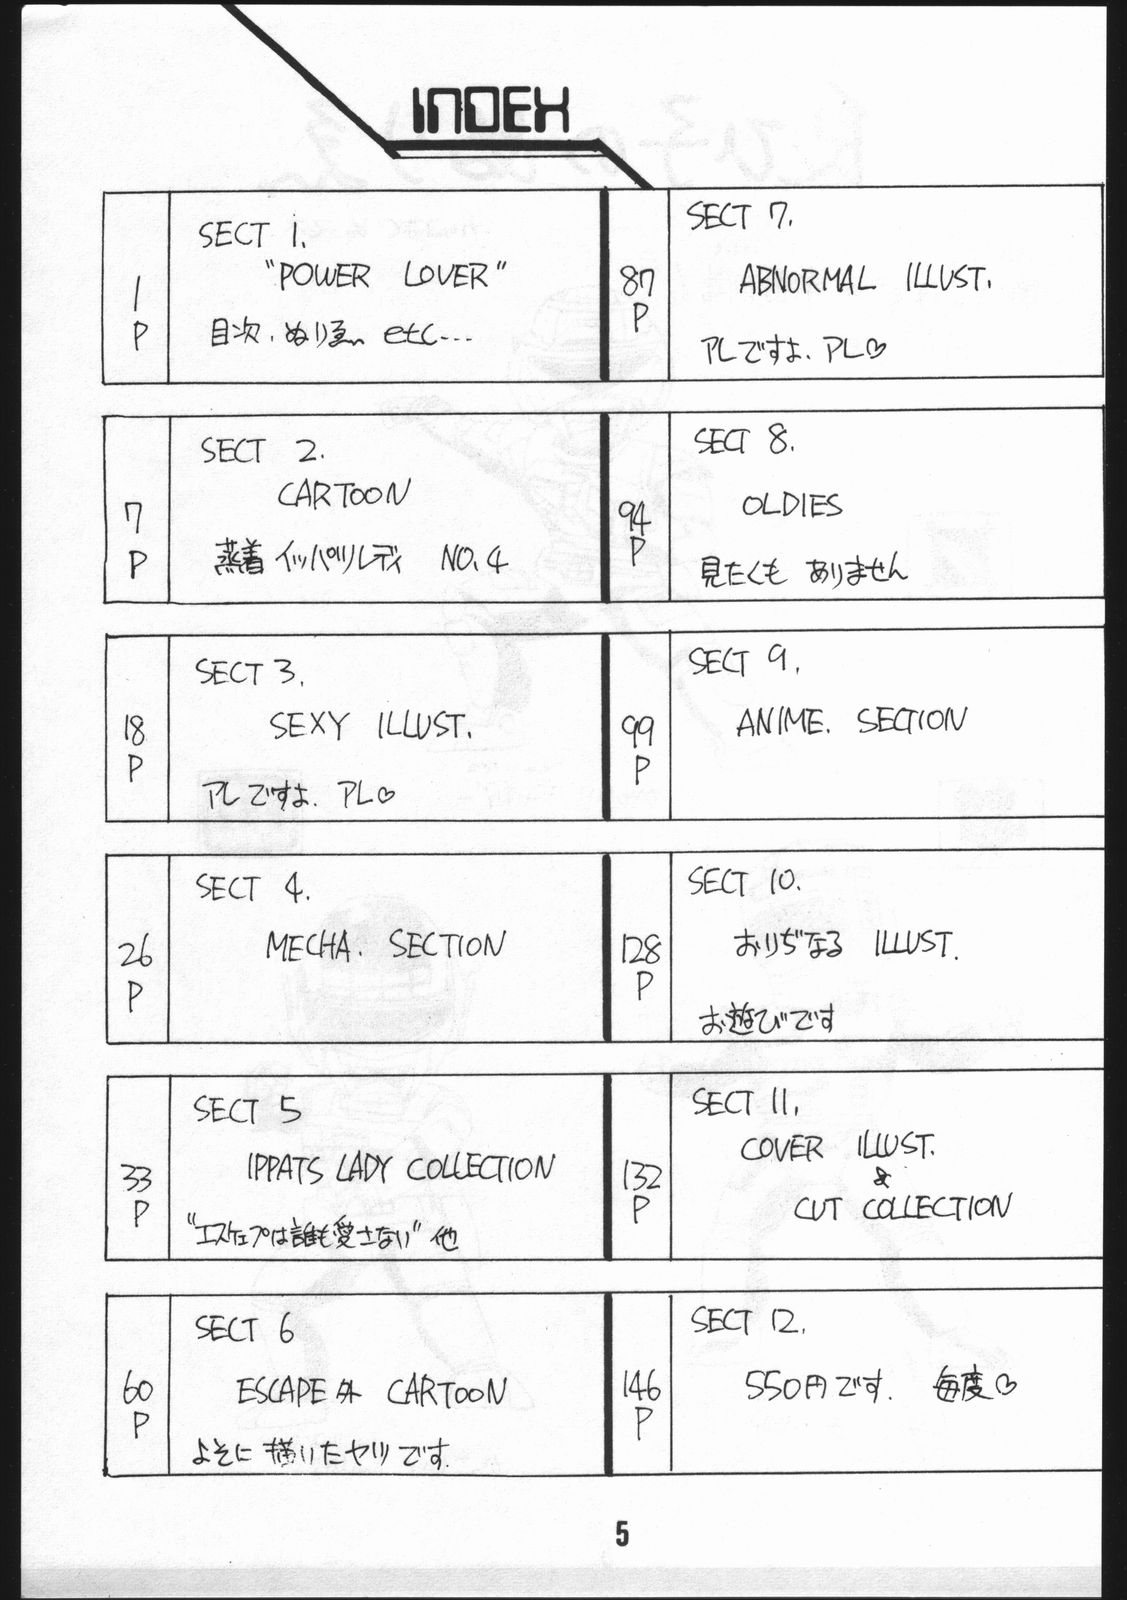 INDEX
1
P
SECT 1.
"POWER LOVER"
目次. ぬりゑ etc...
7
P
SECT 2.
CARTOON
蒸着イッパツレディ NO.4
18
P
SECT 3.
SEXY ILLUST.
アレですよ. アレ♡
26
P
SECT 4.
MECHA. SECTION
33
P
SECT 5
IPPATS LADY COLLECTION
"エスケェプは誰も愛さない" 他
60
P
SECT 6
ESCAPE外 CARTOON
よそに描いたヤツです.
87
P
SECT 7.
ABNORMAL ILLUST.
アレですよ. アレ♡
94
P
SECT 8.
OLDIES
見たくもありません
99
P
SECT 9.
ANIME. SECTION
128
P
SECT 10.
おりぢなる ILLUST.
お遊びです
132
P
SECT 11.
COVER ILLUST.
&
CUT COLLECTION
146
P
SECT 12.
550円です. 毎度♡
5